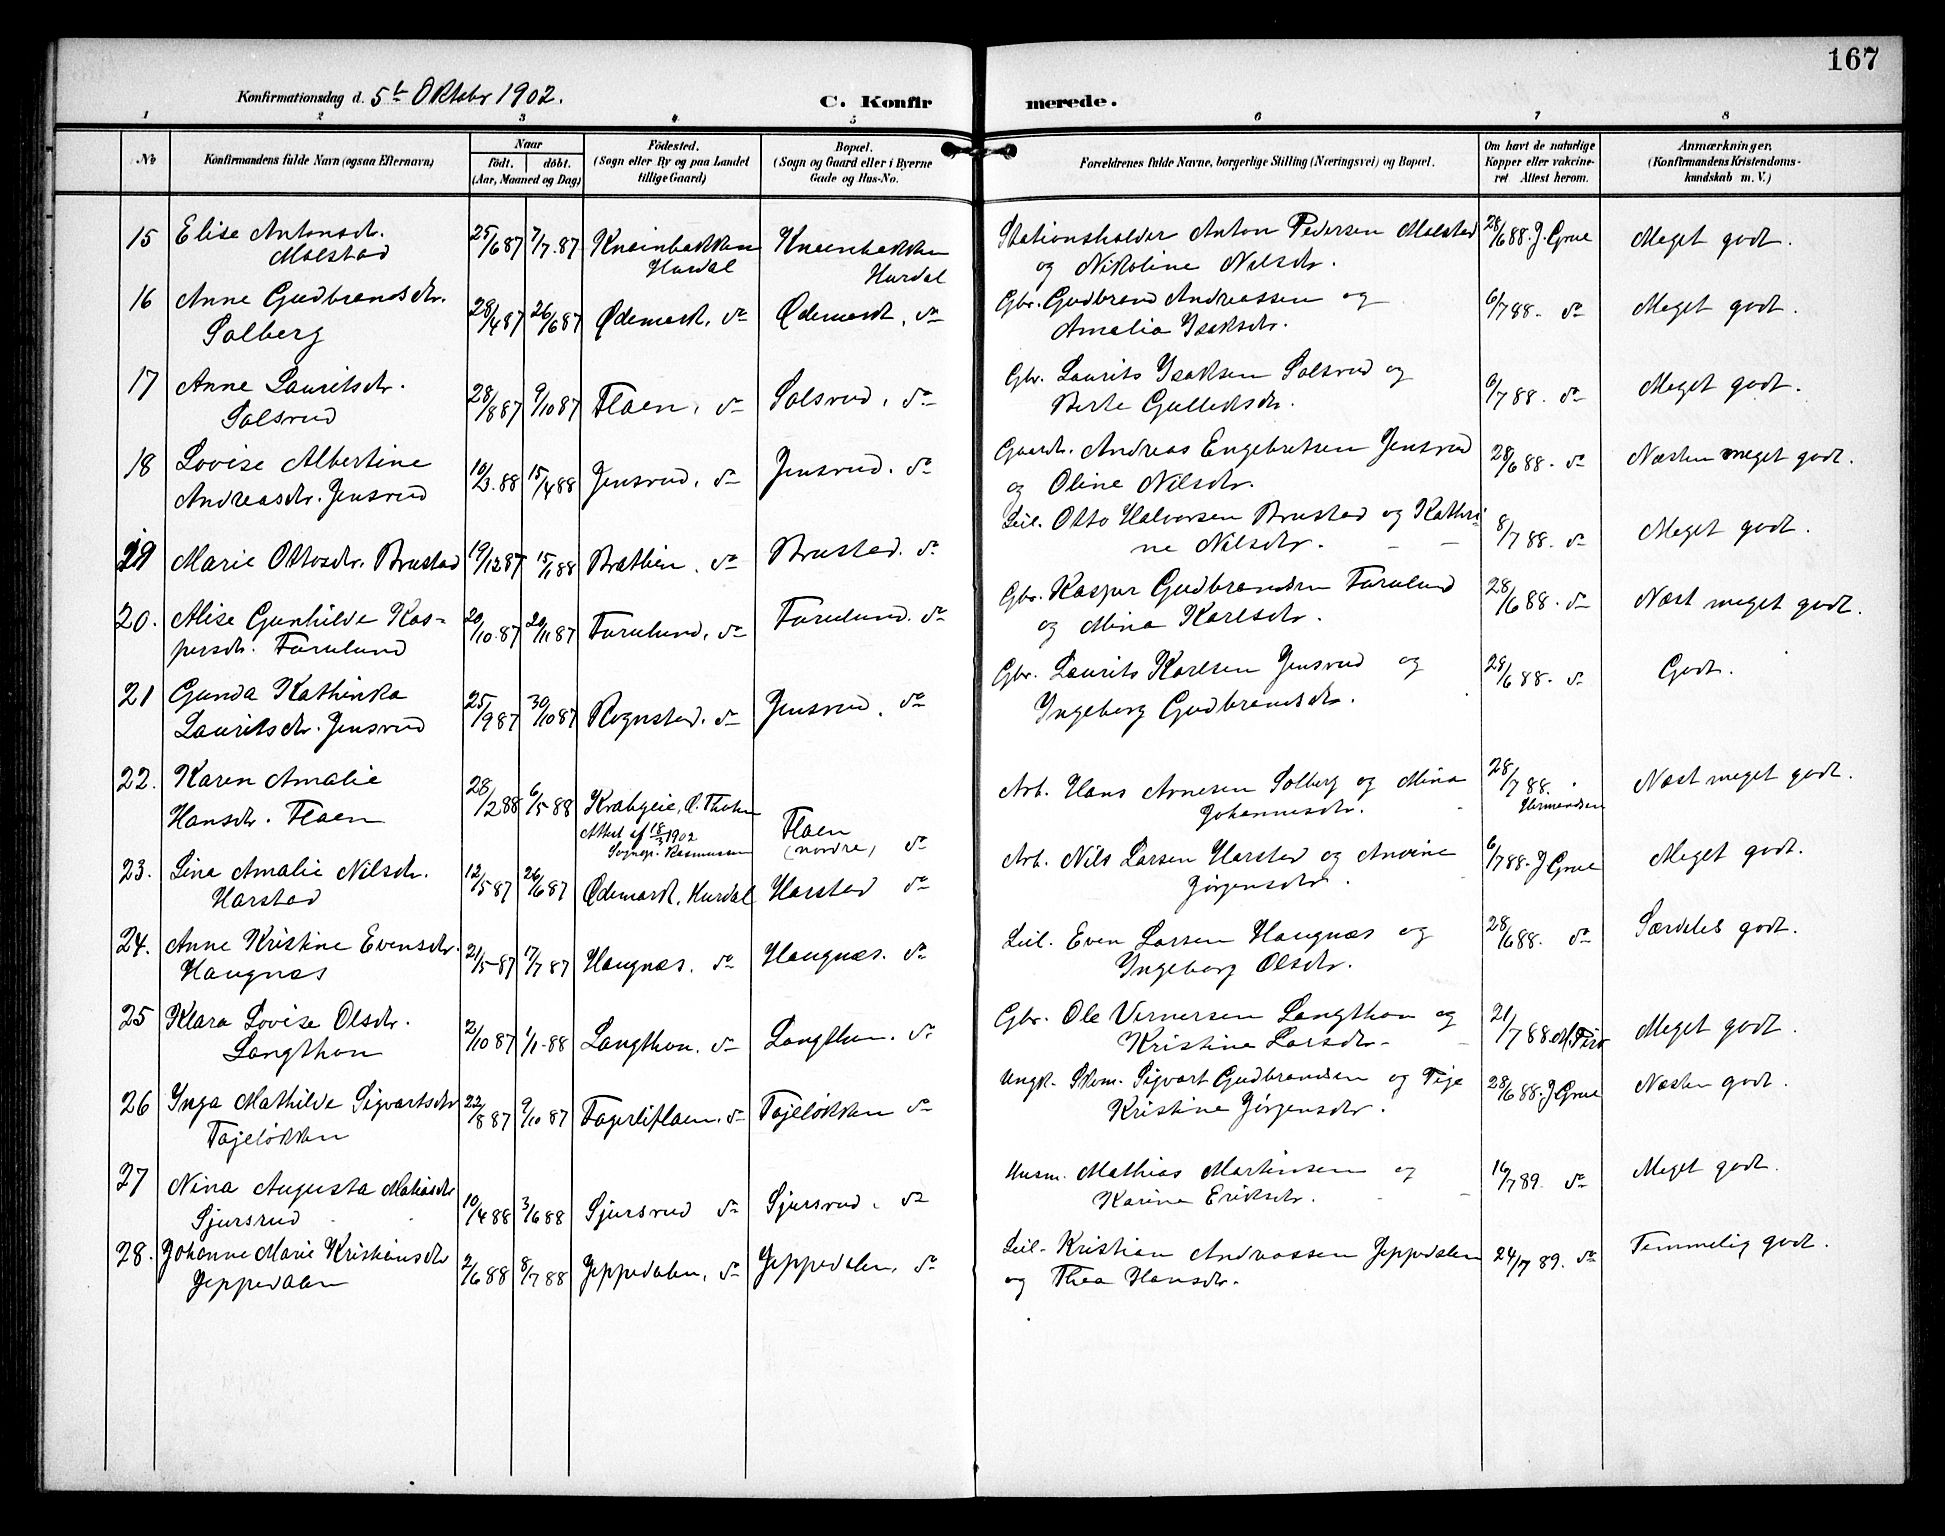 167
Konfirmationsdag d. 5te Oktober 1902.
C. Konfirmerede.
1 2 3 4 5 6 7 8
No
Konfirmandens fulde Navn (ogsaa Efternavn)
Naar
födt. döbt.
(Aar, Maaned og Dag)
Födested.
(Sogn eller By og paa Landet
tillige Gaard)
Bopæl.
(Sogn og Gaard eller i Byerne
Gade og Hus-No.
Forældrenes fulde Navne, borgerlige Stilling (Næringsvei) og Bopæl.
Om havt de naturlige
Kopper eller vakcine-
ret Attest herom.
Anmærkninger.
(Konfirmandens Kristendoms-
kundskab m. V.)
15 Elise Antonsdr. 25/6 87 7/7. 87 Kneinbakken Kneenbakken Stationsholder Anton Pedersen Molstad 28/6 88. J. Grue Meget godt.
Molstad Hurdal Hurdal og Nikoline Nilsdr.
16 Anne Gudbrandsdr. 28/4 87 26/6 87 Ødemark, do Ødemark, do Gbr. Gudbrand Andreassen og 6/7 88. do Meget godt.
Solberg Amalia Isaksdr.
17 Anne Lauritsdr. 28/8 87 9/10 87 Flaen, do Solsrud, do Gbr. Laurits Isaksen Solsrud og 6/7 88. do Meget godt.
Solsrud Berte Gulleksdr.
18 Lovise Albertine 10/3. 88 15/4 88 Jensrud, do Jensrud. do Gaardr. Andreas Engebretsen Jensrud 28/6 88. do Næsten meget godt.
Andreasdr. Jensrud og Oline Nilsdr.
19 Marie Ottosdr. Brustad 19/12 87 15/1 88 Bræthen. do Brustad. do Leil. Otto Halvorsen Brustad og Kathri- 8/7 88. do Meget godt.
ne Nilsdr.
20. Alise Gunhilde Kas- 20/10. 87 20/11 87 Furulund, do Furulund. do Gbr. Kaspar Gudbrandsen Furulund 28/6 88. do Næst meget godt.
persdr. Furulund og Mina Karlsdr.
21 Gunda Kathinka 25/9 87 30/10 87 Rognstad. do Jensrud. do Gbr. Laurits Karlsen Jensrud og 29/6 88. do Godt.
Lauritsdr. Jensrud Ingeborg Gudbrandsdr.
22. Karen Amalie 28/12 88 6/5 88 Krabyeie, Ø. Thoten Flaen Arb. Hans Arnesen Solberg og Mina 28/7 88. Næst meget godt.
Hansdr. Flaen Attest af 18/3 1902 (nordre) do Johannesdr. Hermandsen
Sognepr. Rasmussen
23. Lina Amalie Nilsdr. 12/5 87 26/6 87 Ødemark, Hurdal Harstad do Arb. Nils Larsen Harstad og Anoine 6/7 88. J Grue Meget godt.
Harstad Jørgensdr.
24. Anne Kristine Evensdr. 21/5-87 17/7 87 Haugnæs. do Haugnæs. do Leil. Even Larsen Haugnæs og 28/6 88. do Særdeles godt.
Haugnæs Ingeborg Olsdr.
25 Klara Lovise Olsdr. 2/10 87 1/1-88 Langthon. do Langthon. do Gbr. Ole Vernersen Langthon og 21/7 88 Meget godt.
Langthon Kristine Larsdr.
26 Inga Mathilde Sigvartsdr 22/8 87 9/10 87 Fagerliflaen. do Tajeløkken do Ungk. Skom. Sigvart Gudbrandsen og Pige 28/6 88. J Grue Næsten godt.
Tajeløkken Kristine Jørgensdr.
27 Nina Augusta Matiasdr 10/4 88 3/6 88 Sjursrud do Sjursrud. do Husm. Mathias Martinsen og 16/7 89. do Meget godt.
Sjursrud Karine Eriksdr.
28. Johanne Marie Kristiansdr 2/6 88 8/7 88 Jeppedalen, do Jeppedalen, do Leil. Kristian Andreassen Jeppedalen 24/7 89. do Temmelig godt.
Jeppedalen og Thea Hansdr.